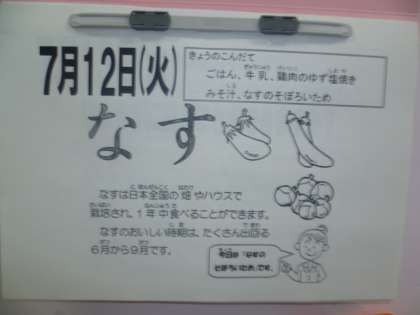 7月12日(火)
きょうのこんだて
ごはん、牛乳、鶏肉のゆず塩焼き
みそ汁、なすのそぼろいため
なす
なすは日本全国の畑やハウスで
栽培され、1年中食べることができます。
なすのおいしい時期は、たくさん出回る
6月から9月です。
今日は「なすの
そぼろいため」です。